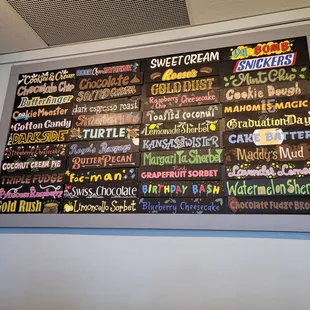 Cookies & Cream
Chocolate Chip
Butterfinger
Cookie Monster
Cotton Candy
DARK SIDE
COCONUT CREAM PIE
TRIPLE FUDGE
Gold Rush
Chocolate
SALTED
dark espresso roast
TURTLE
BUTTER PECAN
Foc-man
Swiss Chocolate
Limoncello Sorbet
SWEET CREAM
Reese's
GOLD DUST
Raspberry Cheesecake
Toasted Coconut
Lemonade Sorbet
KANSAS TWISTER
Margarita Sherbet
GRAPEFRUIT SORBET
BIRTHDAY BASH
Blueberry Cheesecake
BOMB
SNICKERS
Mint Chip
Cookie Dough
MAHOMES MAGIC
Graduation Day
CAKE BATTER
Maddy's Mud
Lavender Lemon
Watermelon Sher
CHOCOLATE FUDGE BRO